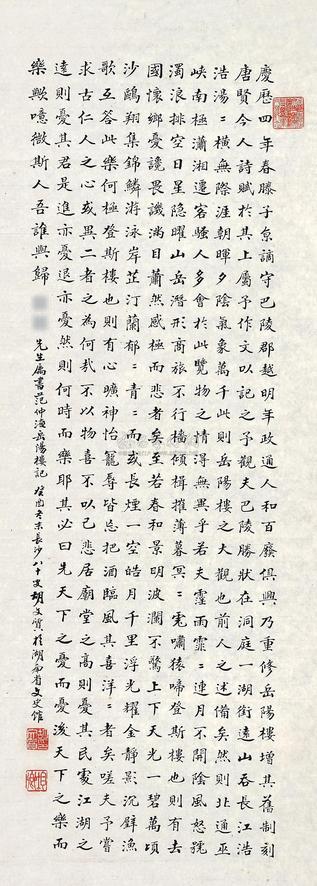 慶歷四年春滕子京謫守巴陵郡越明年政通人和百廢俱興乃重修岳陽樓增其舊制刻
唐賢今人詩賦於其上屬予作文以記之予觀夫巴陵勝狀在洞庭一湖銜遠山吞長江浩
浩湯二橫無際涯朝暉夕陰氣象萬千此則岳陽樓之大觀也前人之述備矣然則北通巫
峽南極瀟湘遷客騷人多會於此覽物之情得無異乎若夫霪雨霏二連月不開陰風怒號
濁浪排空日星隱曜山岳潛形商旅不行檣傾楫摧薄暮冥二虎嘯猿啼登斯樓也則有去
國懷鄉憂讒畏譏滿目蕭然感極而悲者矣至若春和景明波瀾不驚上下天光一碧萬頃
沙鷗翔集錦鱗游泳岸芷汀蘭郁二青二而或長煙一空皓月千里浮光耀金靜影沉璧漁
歌互答此樂何極登斯樓也則有心曠神怡寵辱皆忘把酒臨風其喜洋二者矣嗟夫予嘗
求古仁人之心或異二者之為何哉不以物喜不以己悲居廟堂之高則憂其民處江湖之
遠則憂其君是進亦憂退亦憂然則何時而樂耶其必曰先天下之憂而憂後天下之樂而
樂歟噫微斯人吾誰與歸
先生屬書范仲淹岳陽樓記 癸酉冬末長沙八十叟胡文質於湖南省文史館